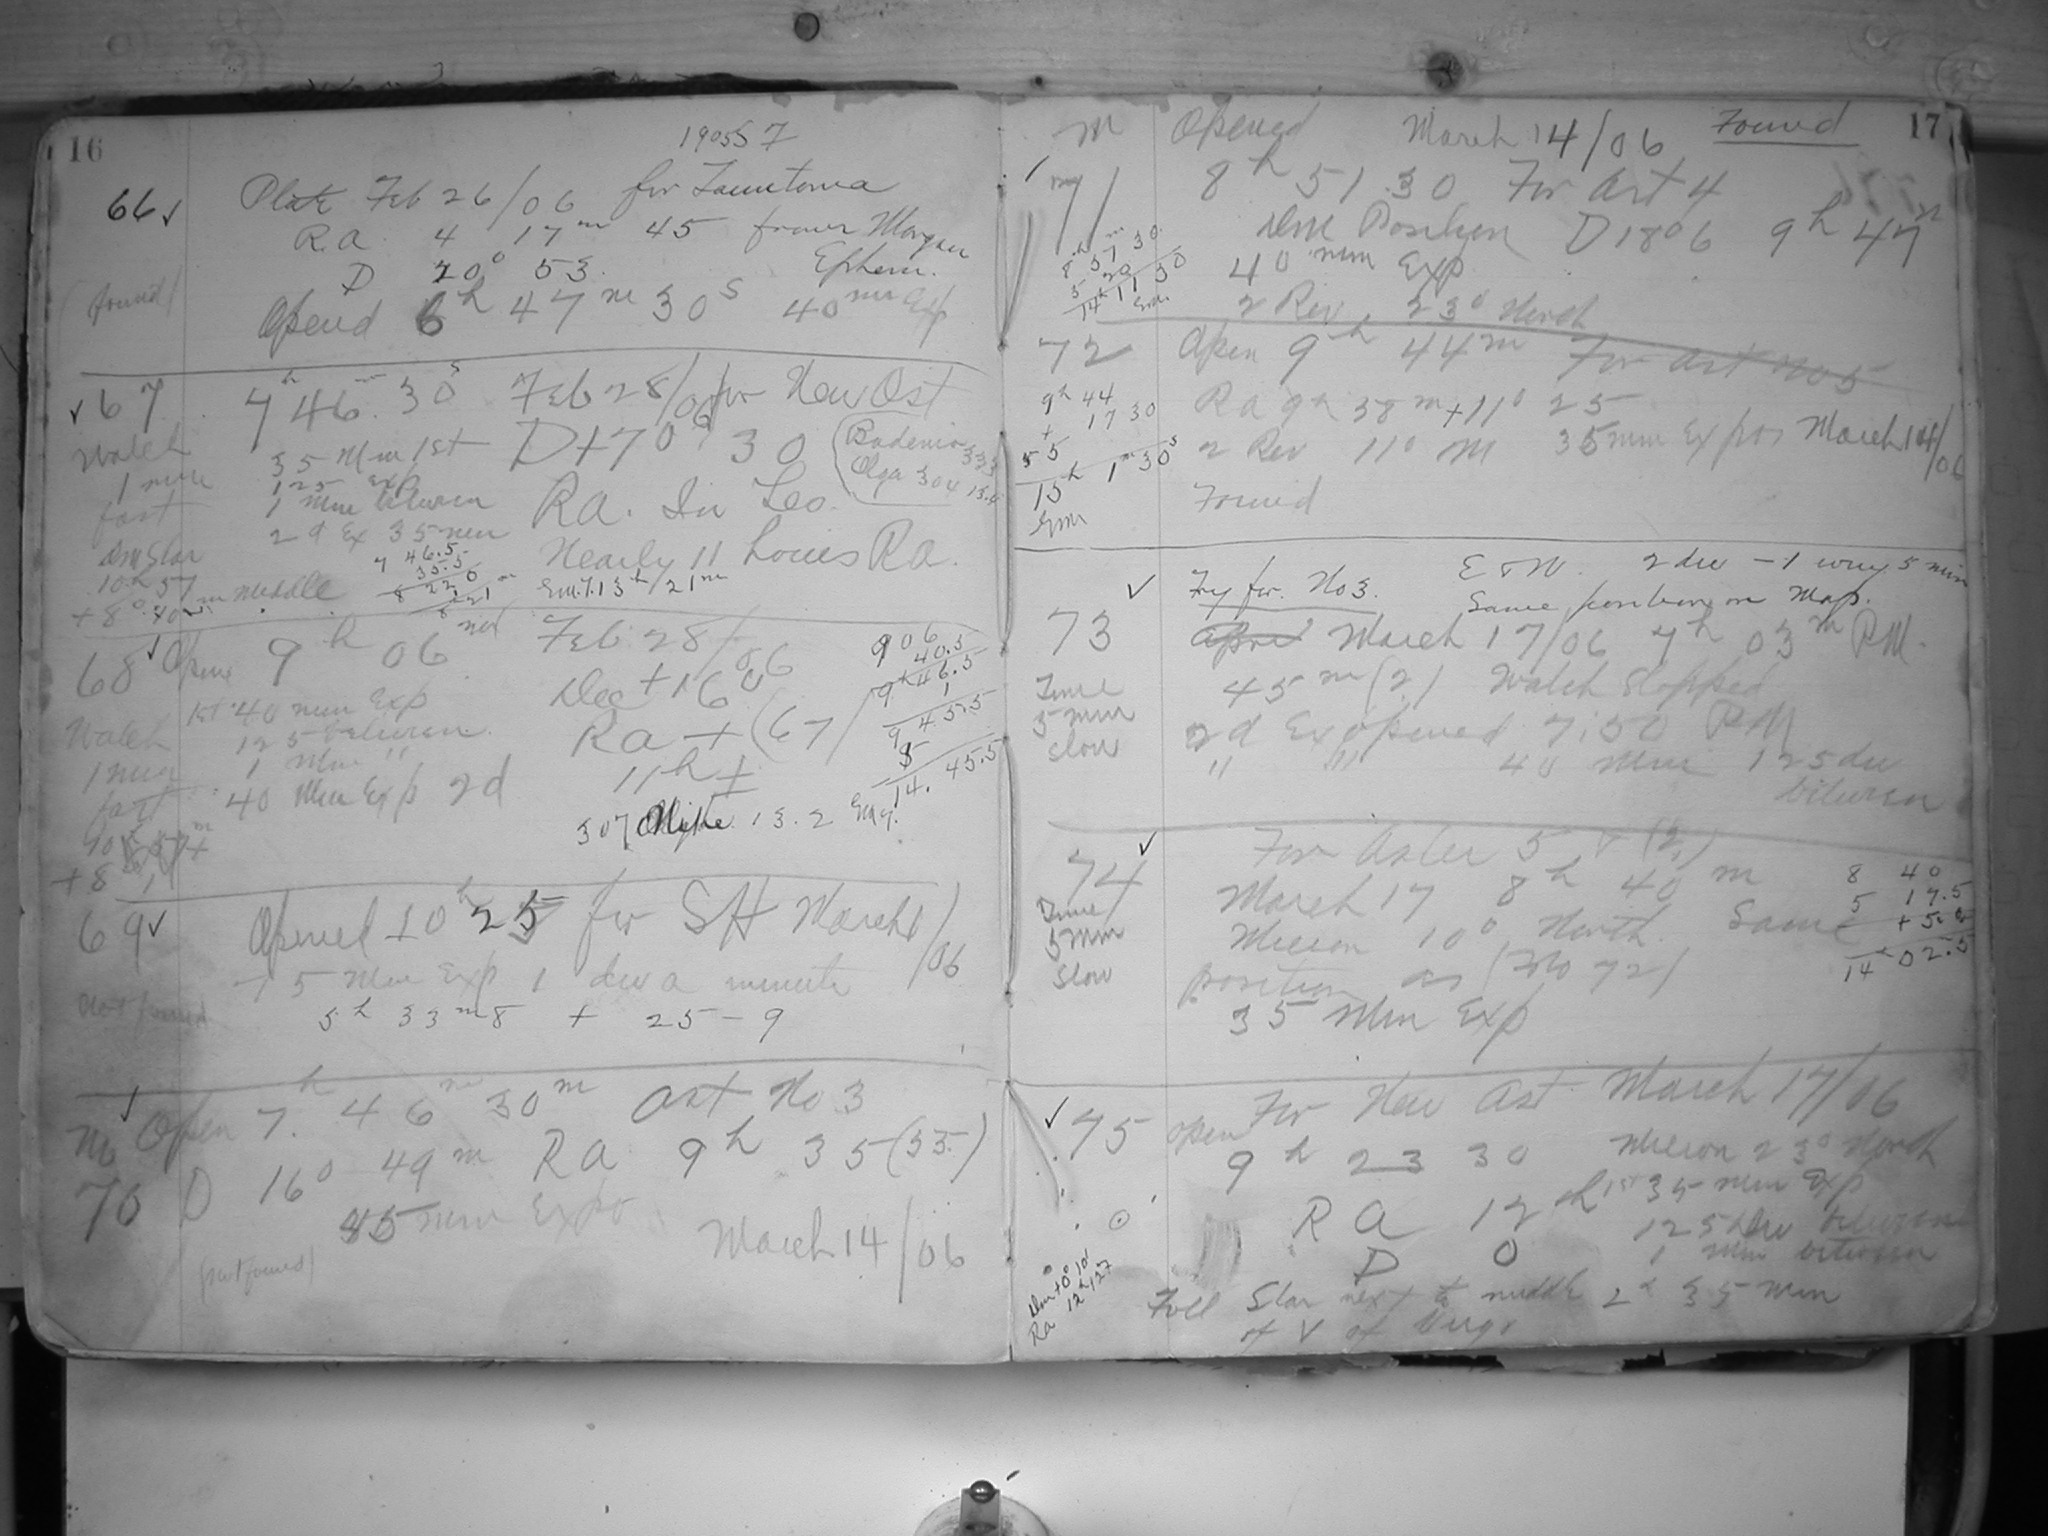 16
1905 S 7
66 ✓ Plate Feb 26/06 for Tauntonia
R.a. 4 17m 45 from Morgan
D 20° 53. Ephem.
(found) Opend 6h 47m 30s 40 min Exp
✓ 67 7h 46m 30s Feb 28/06 for New Ast
Watch 1 min fast
35 Min 1st D+7° 30
125 Exp
1 Min between
2d Ex 35 min
(Badenia 333
Olga 304 13.4)
RA. In Leo.
Nearly 11 hours Ra.
Dm Star
10h 57m middle
+8° 40
7 46.5
35.5
8 22 0
8 21
Gm.T. 13h 21m
68 ✓ Open 9h 06 Feb 28/06
Watch 1 min fast
1st 40 min Exp
125 between
1 Min "
40 Min Exp 2d
Dec +16°
Ra + (67)
11h ±
9 06
40.5
9h 46.5
1
9 45.5
5
14. 45.5
307 Nike 13.2 Mag.
+8°
69 ✓ Opened 10h 25 for SH March 1/06
75 Min Exp 1 div a minute
Not found
5h 33m 8 + 25-9
✓
M Open 7h 46m 30m Ast No 3
70 D 16° 49m RA 9h 35 (35)
45 min Expo
(not found) March 14/06
17
M Opened March 14/06 Found
71 8h 51 30 For Ast 4
Dm Position D 18°6 9h 47m
40 min Exp
2 Rev 23° North
8h 51m 30
20
5
14h 11 30
Gm.
72 Open 9h 44m For Ast No 5
Ra 9h 38m +11° 25
2 Rev 11° M 35 min Expos March 14/06
Found
9h 44
+ 17 30
5
15h 1m 30s
Gm
✓ Try for No 3. E & W. 2 div - 1 every 5 min
Same position on Map.
73 March 17/06 7h 03m P.M.
Time 5 min slow
45m (2) Watch Stopped
2d Ex opened 7:50 P.M
" " 40 Min 125 div
between
✓
74 For Aster 5 (2)
March 17 8h 40m
Time 5 min slow
Micron 10° North. Same
position as (No 72)
35 Min Exp
8 40
5 17.5
+ 5
14h 02.5
✓ 75 For New Ast March 17/06
open 9h 23 30 Micron 23° North
RA 12h 1st 35 min Exp
125 div between
D 0 1 Min between
Foll Star next to middle 2d 35 Min
of V of Virgo
Dm +0° 10'
Ra 12h 27